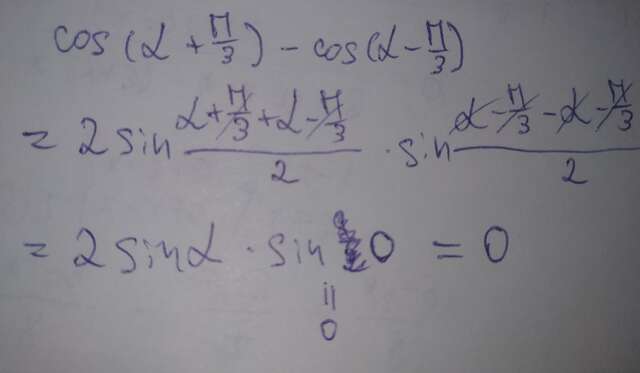 cos(α + π/3) - cos(α - π/3)
= 2 sin (α + π/3 + α - π/3)/2 · sin (α - π/3 - α - π/3)/2
= 2 sinα · sin 0 = 0
=
0